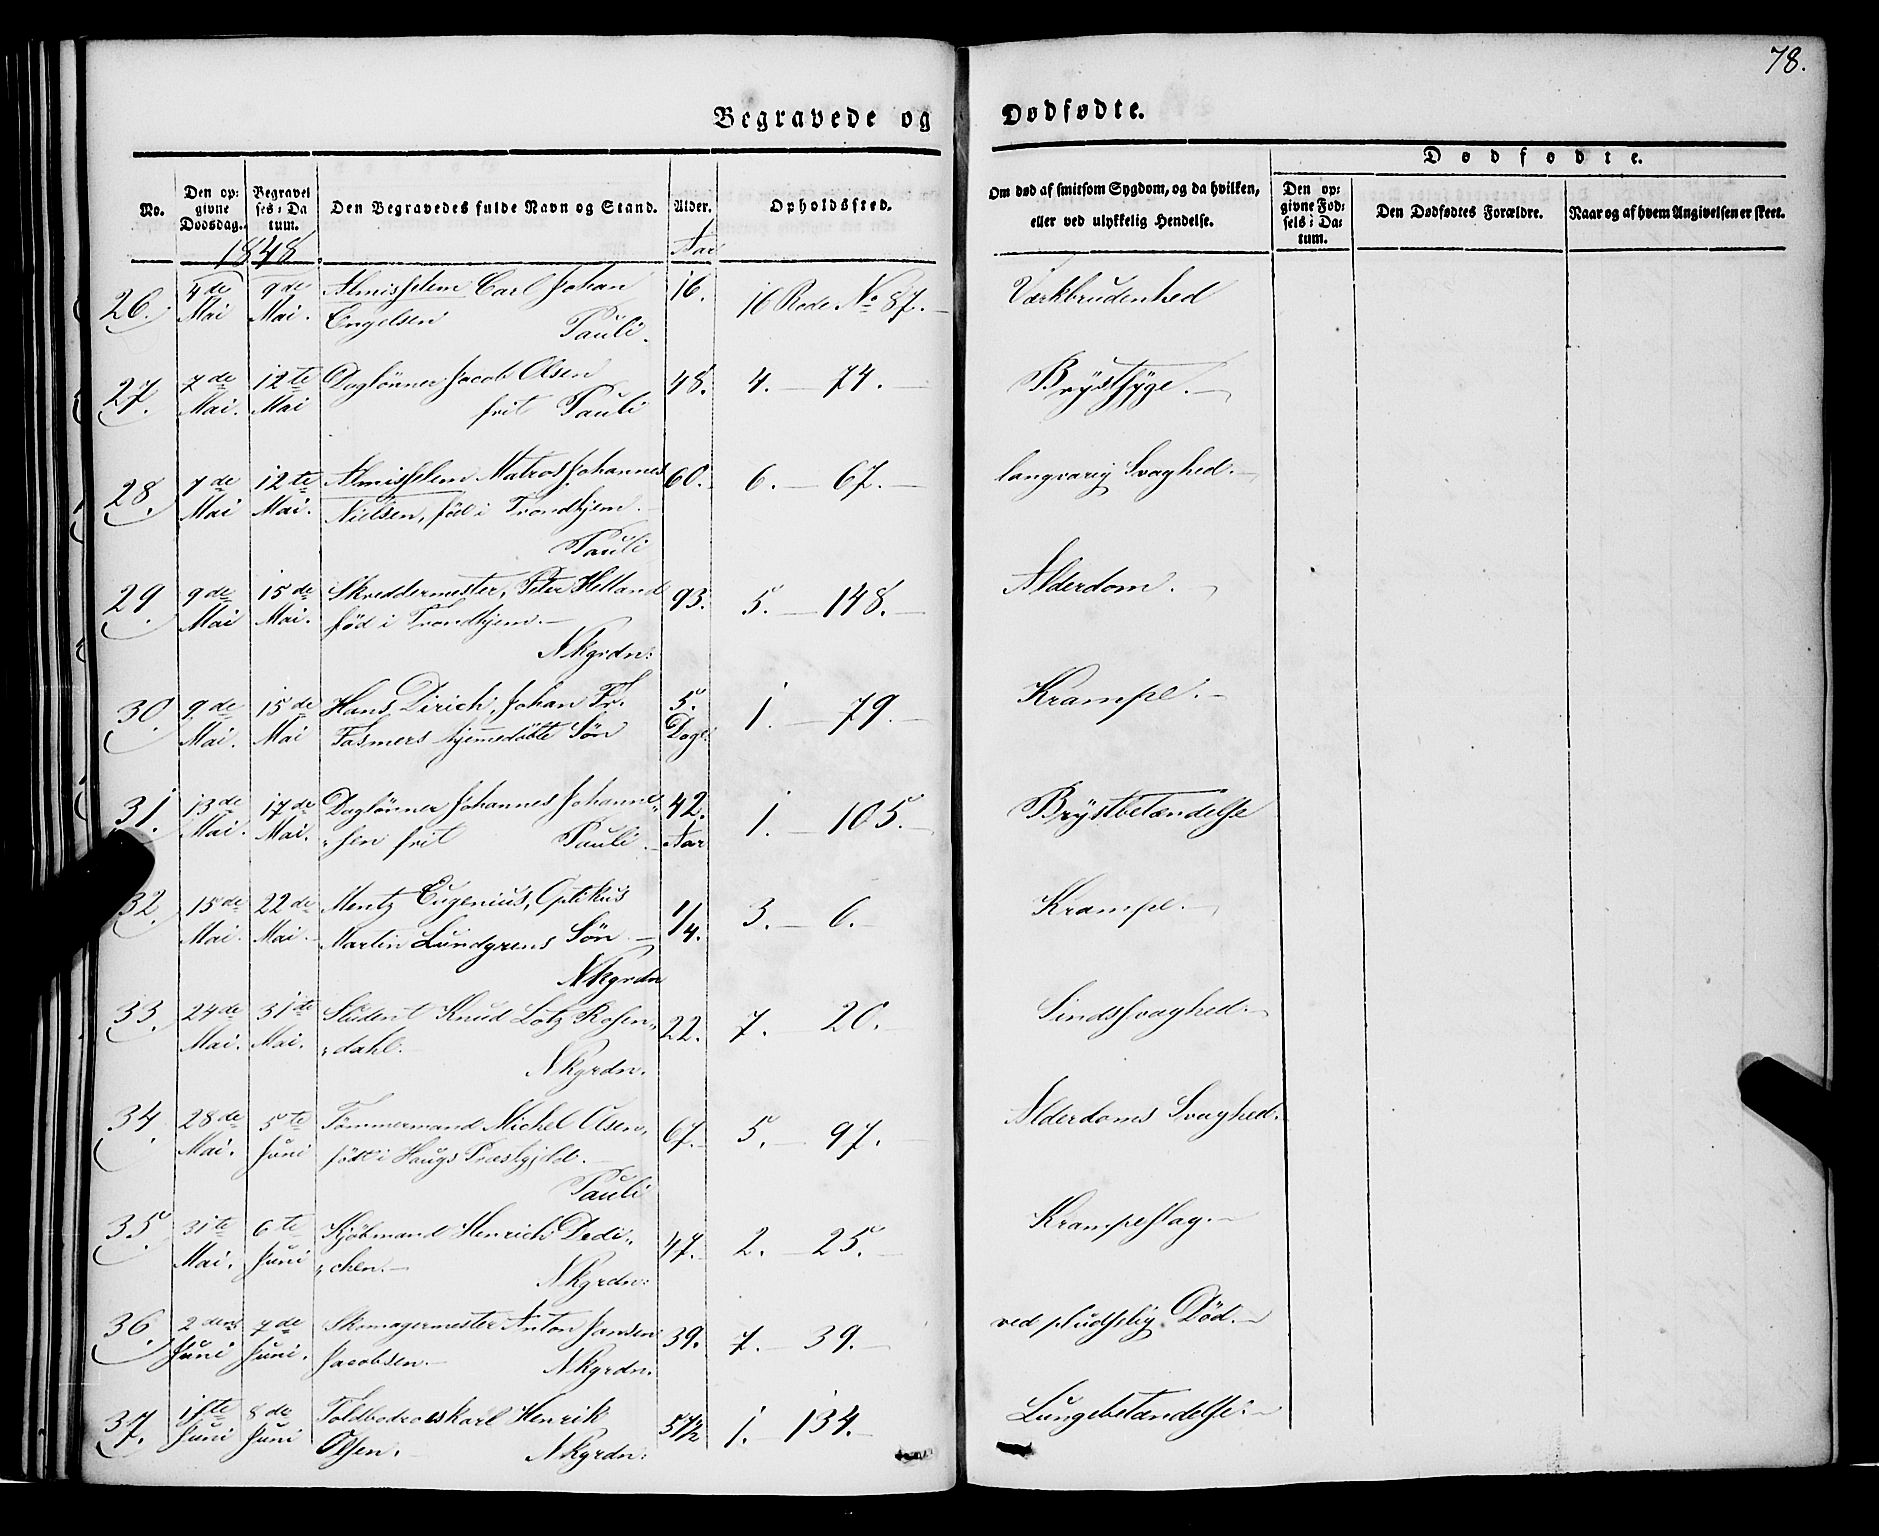 78.
Begravede og Dødfødte.
Dødfødte.
No.
Den opgivne Dødsdag.
Begravelses-Datum.
Den Begravedes fulde Navn og Stand.
Alder.
Opholdssted.
Om død af smitsom Sygdom, og da hvilken, eller ved ulykkelig Hendelse.
Den opgivne Fødsels-Datum.
Den Dødfødtes Forældre.
Naar og af hvem Angivelsen er skeet.
1848.
Aar
26. 4de Mai 9de Mai. Almisselem Carl Johan 16. 16 Rode No 87. Værkbrudenhed
Engelsen Pauli.
27. 7de Mai. 12te Mai Daglönner Jacob Olsen 48. 4. — 74. — Brÿstsÿge.
frit Pauli
28. 7de Mai 12te Mai. Almisselem Matros Johannes 60. 6. — 67. — langvarig Svaghed.
Nielsen, föd i Trondhjem.
Pauli
29. 9de Mai 15de Mai. Skreddermester, Peter Helland 93. 5. — 148. — Alderdom.
född i Trondhjem.
NKgrdn:
30. 9de Mai. 15de Mai Hans Dirich, Johan Fr. 5. Dage. 1. — 79. — Krampe.
Fasmers hjemmedöbte Sön
31. 13de Mai. 17de Mai. Daglönner Johannes Johanne- 42. Aar 1. — 105. — Brÿstbetændelse
sen frit Pauli.
32. 15de Mai. 22de Mai. Mentz Eugenius, Optikus 1/4. 3. — 6. — Krampe.
Martin Lundgrens Sön
NKgrdn
33. 24de Mai. 31de Mai. Student Knud Lotz Rosen- 22. 7. — 20. — Sindssvaghed.
dahl. NKgrdn.
34. 28de Mai. 5te Juni Tømmermand Michel Olsen, 67. 5. — 97. Alderdoms Svaghed.
född i Haugs Præstgjeld.
Pauli
35. 31te Mai. 6te Juni Kjöbmand Henrich Dedi- 47. 2. — 25. — Krampeslag.
chen. NKgrdn:
36. 2den Juni 7de Juni. Skomagermester Anton Jansen 39. 7. — 39. — ved pludselig Död.
Jacobsen. NKgrdn:
37. 1ste Juni 8de Juni Toldbodroeskarl Henrik 57 1/2 1. — 134. — Lungebetændelse.
Olsen. NKgrdn: